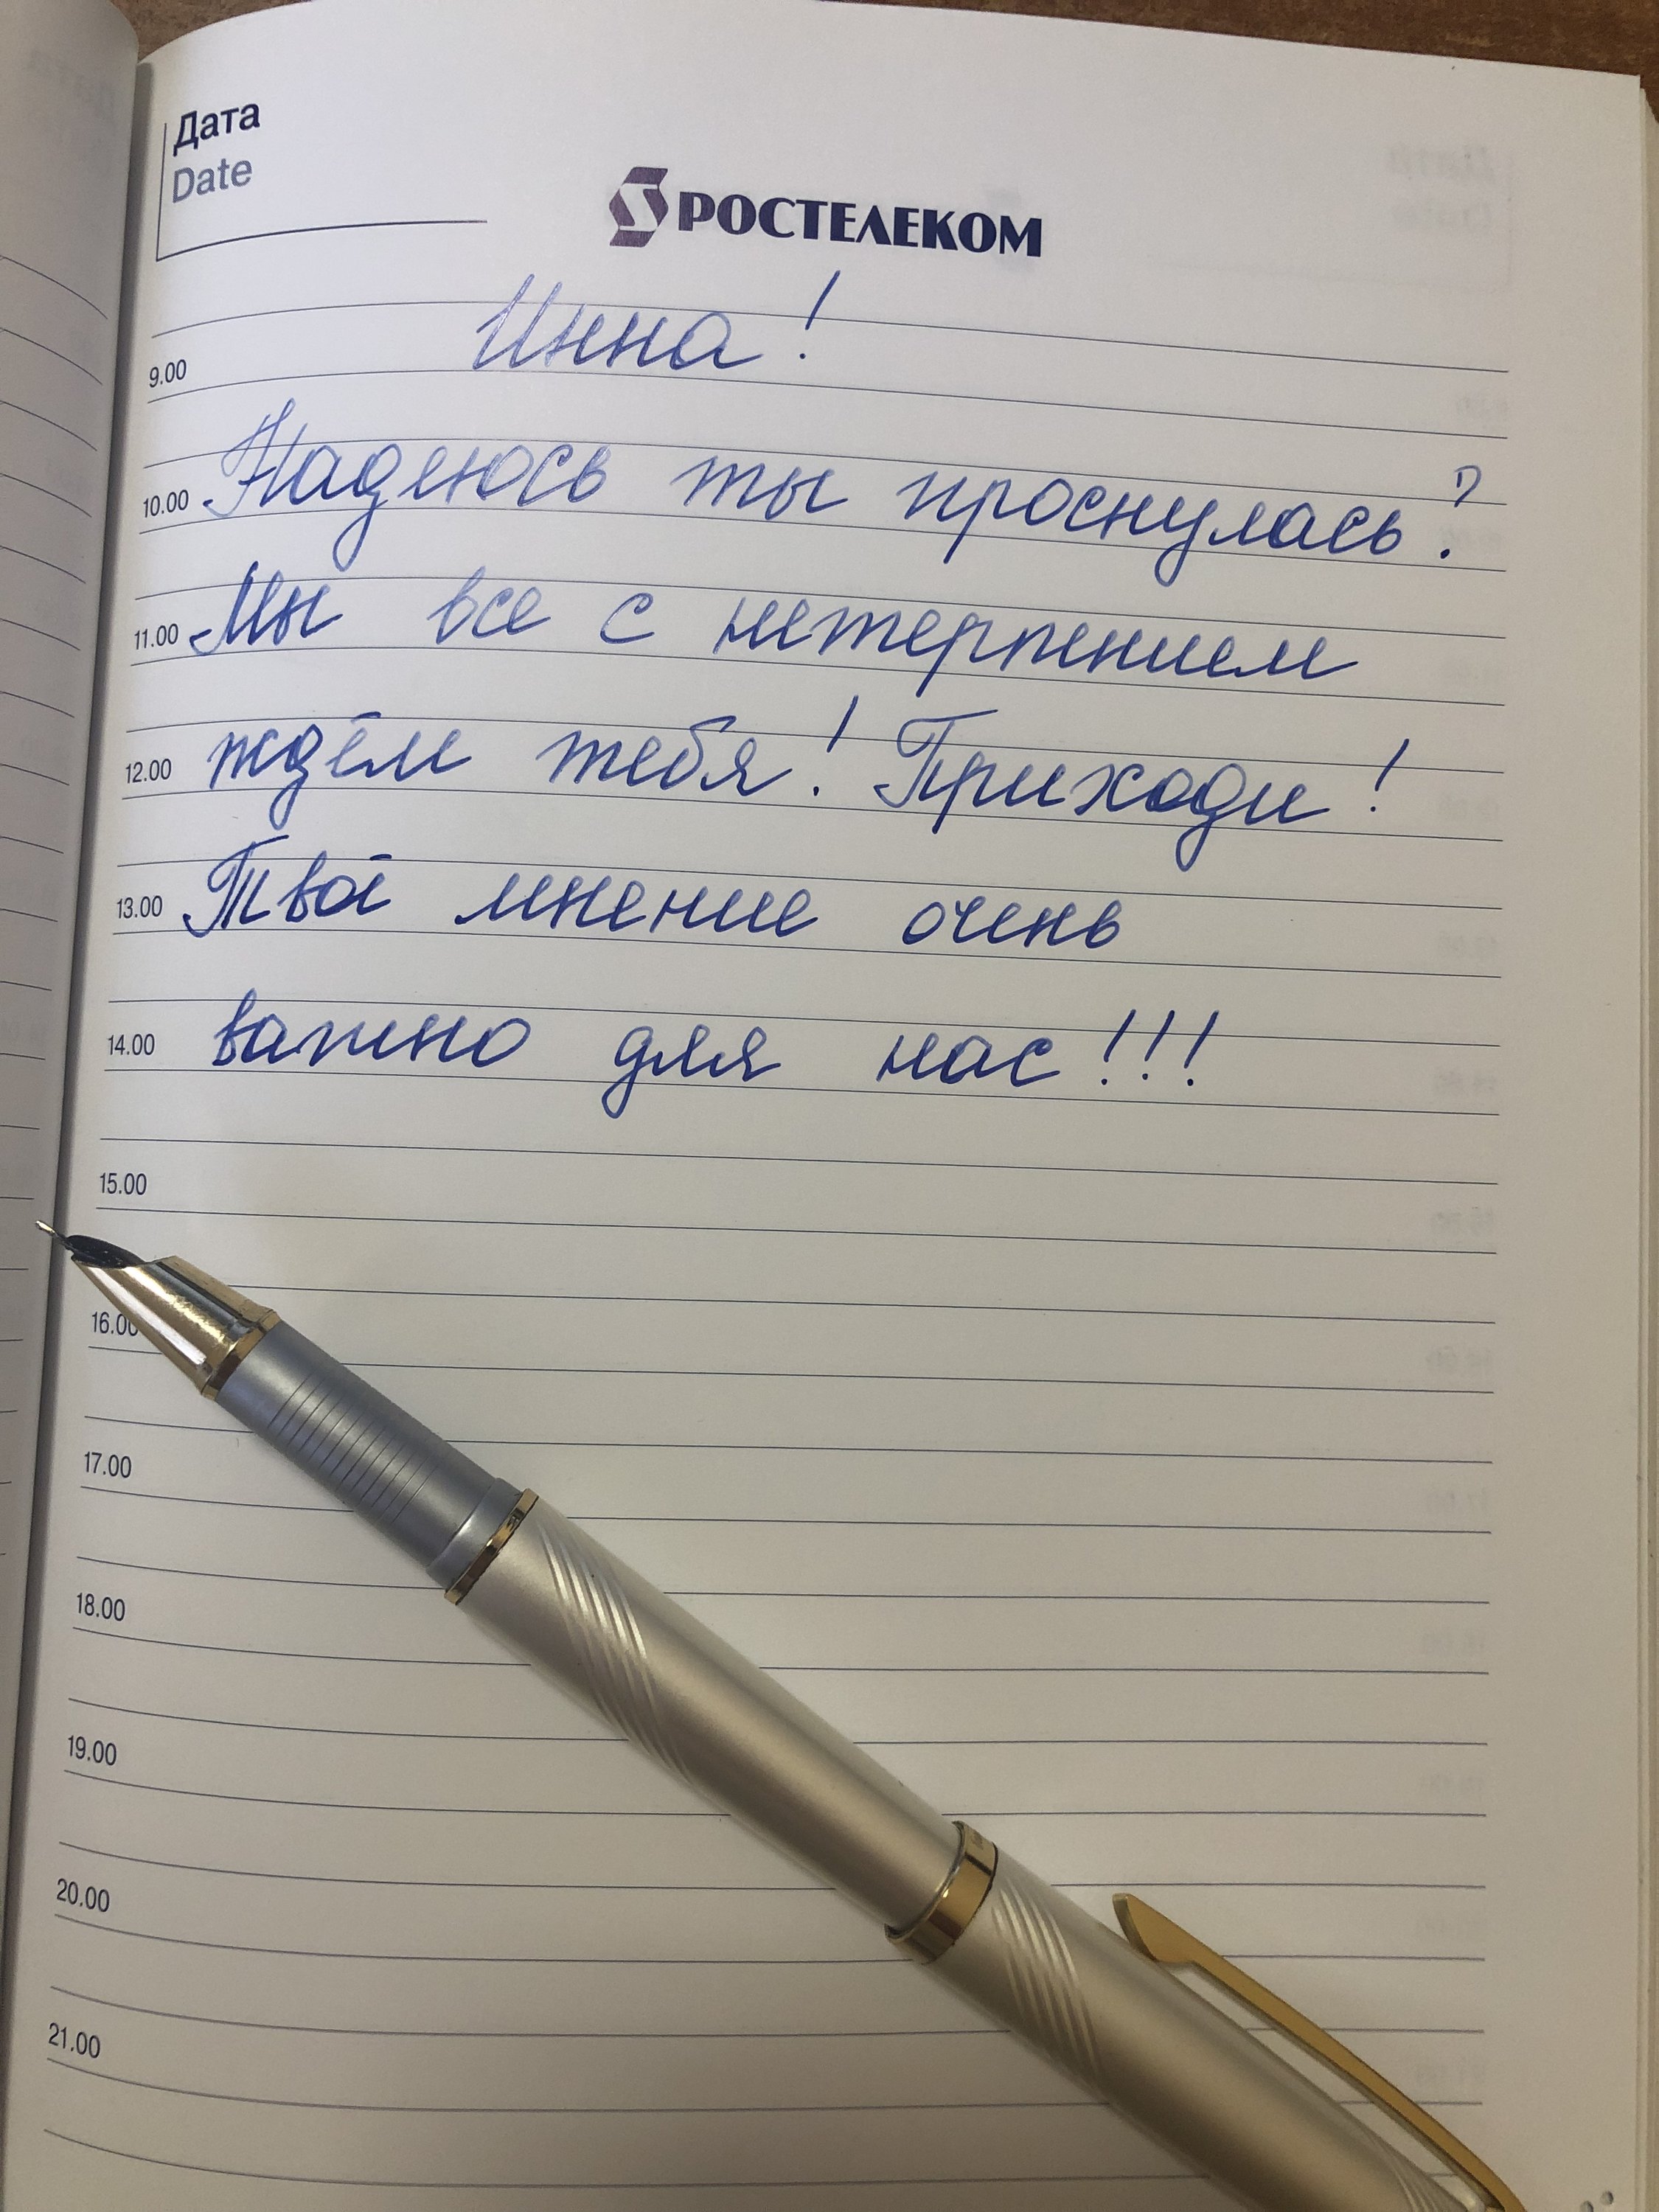 Дата
Date
РОСТЕЛЕКОМ
Инна!
9.00
Надеюсь ты проснулась?
10.00
Мы все с нетерпением
11.00
ждём тебя! Приходи!
12.00
Твоё мнение очень
13.00
важно для нас!!!
14.00
15.00
16.00
17.00
18.00
19.00
20.00
21.00